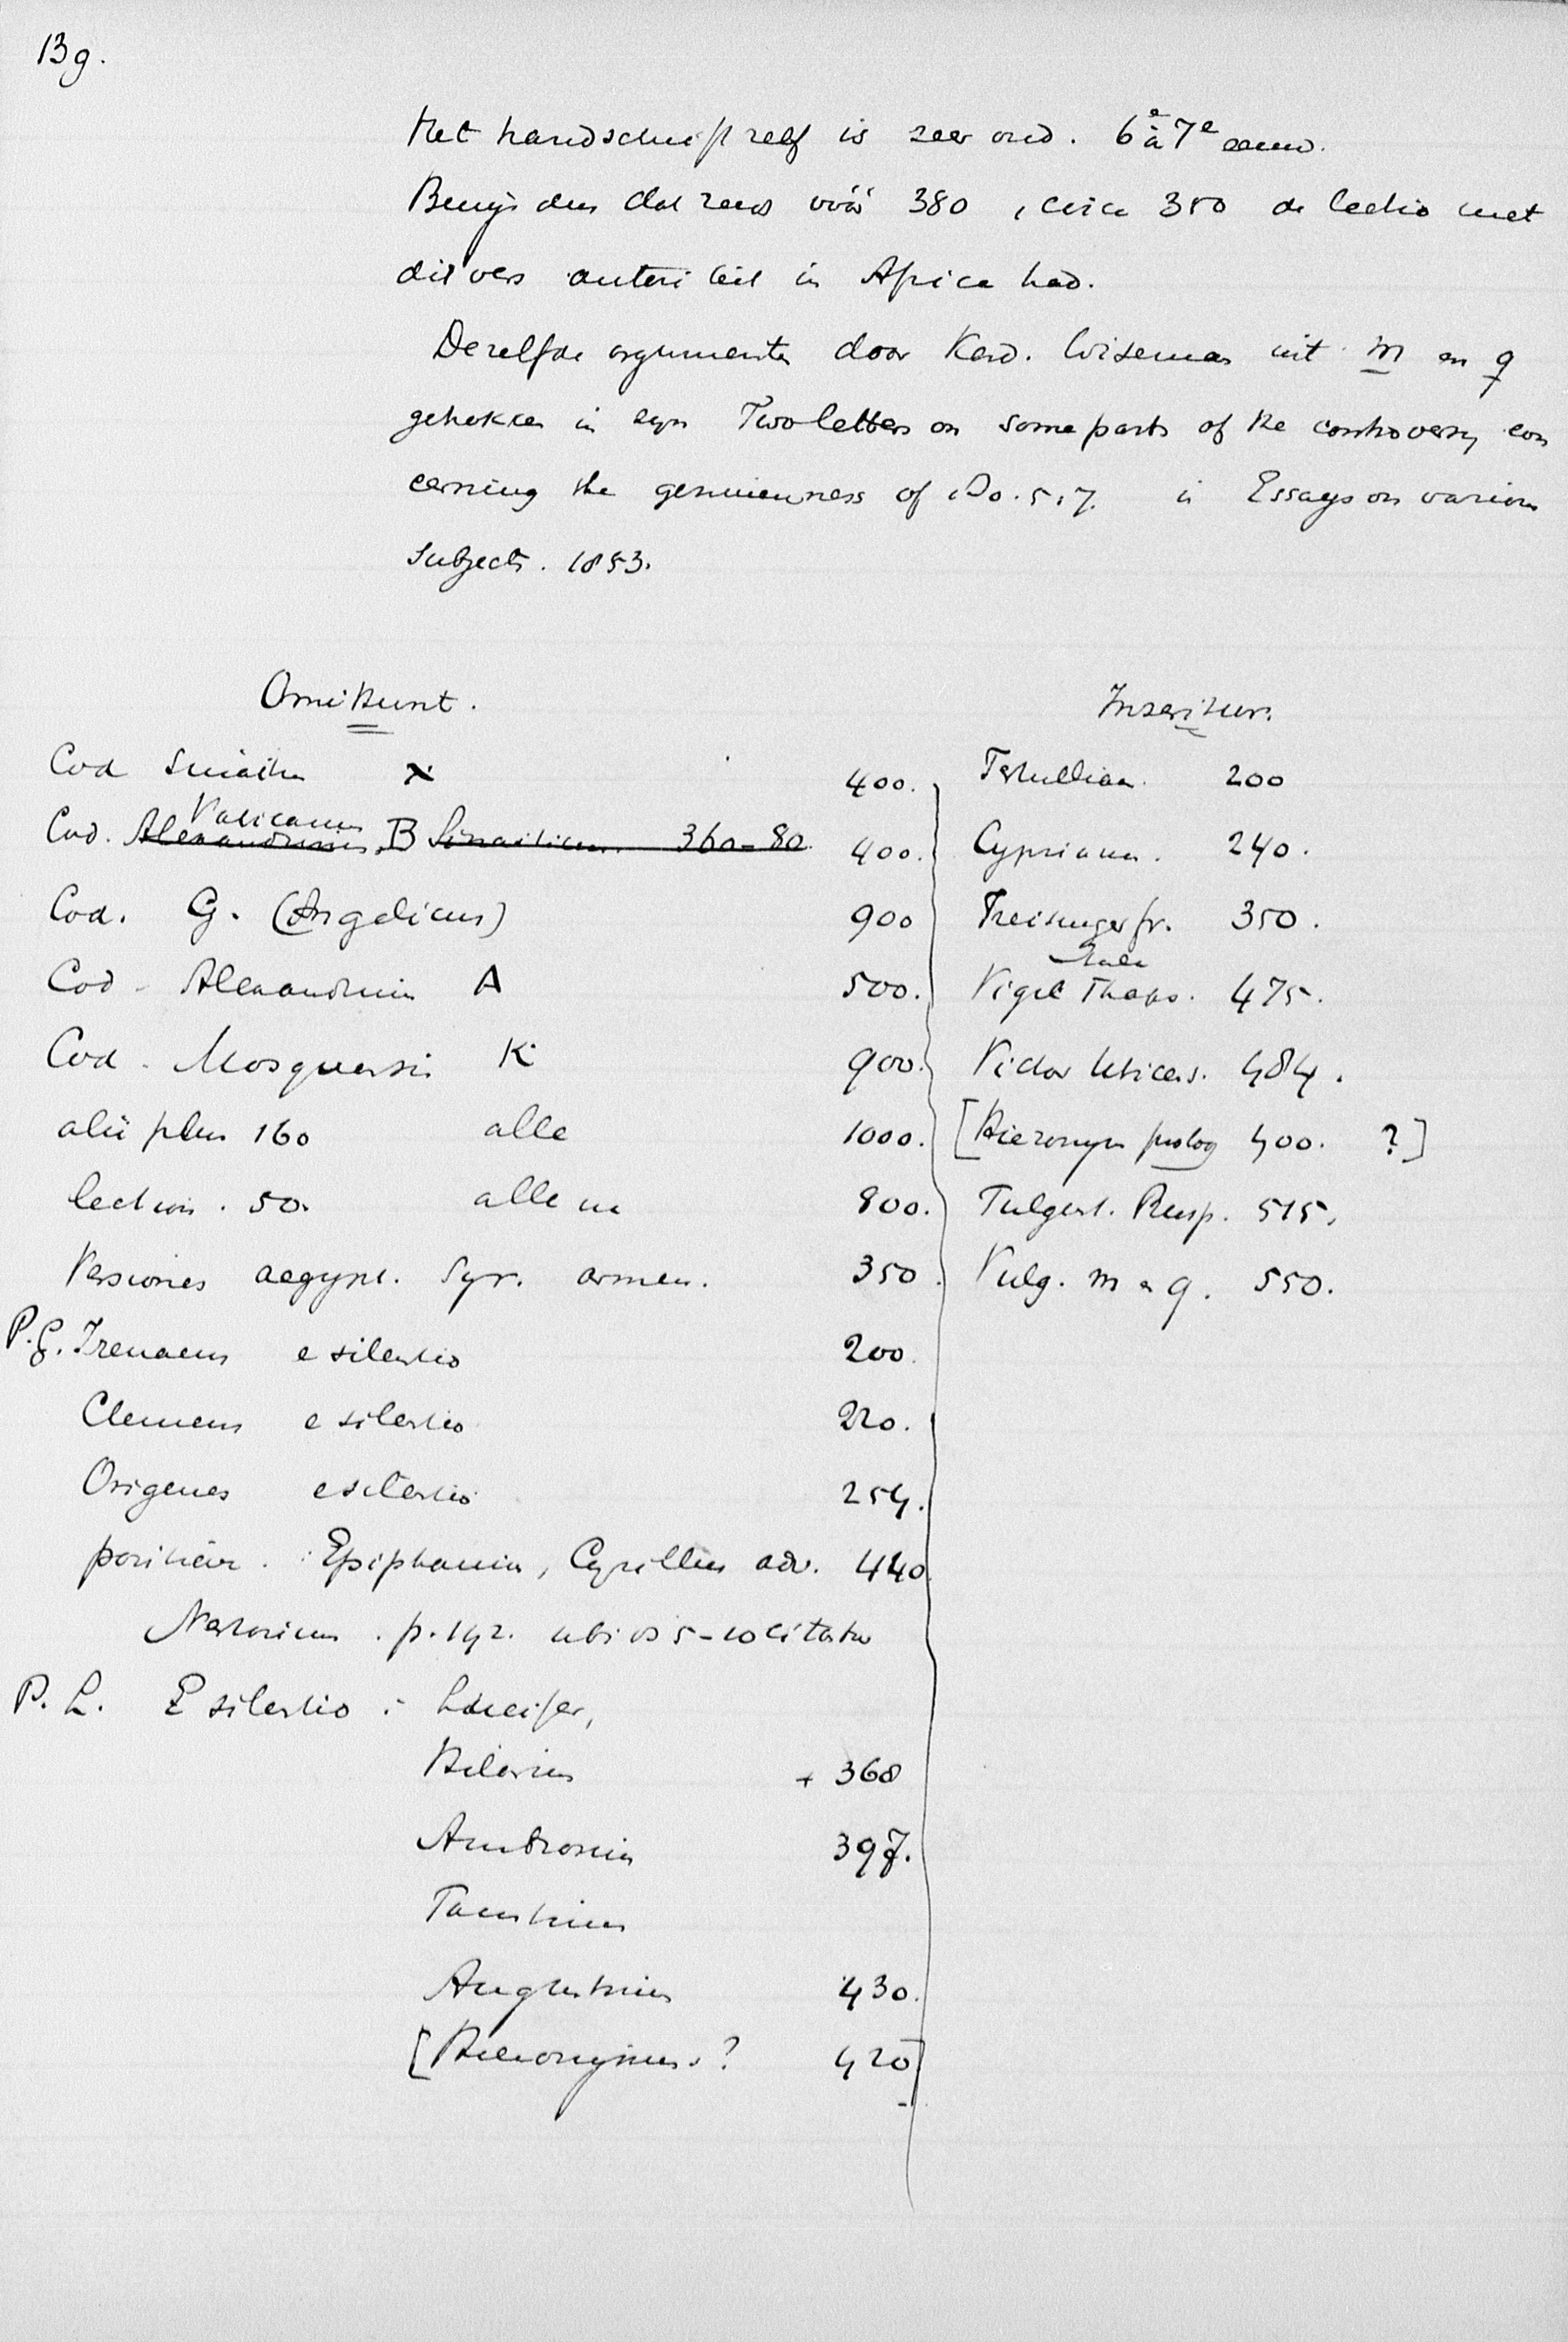 13g.
Het handschrift zelf is zeer oud. 6e à 7e eeuw.
Bewijs dus dat reeds vóór 380, circa 350 de lectio met
dit vers autoriteit in Africa had.
Dezelfde argumenten door Kard. Wiseman uit m en q
getrokken in zijn Two letters on some parts of the controversy con
cerning the genuineness of iJo. 5,7. in Essays on various
subjects. 1853.
Omittunt.
Cod Sinaiticus א 400.
Cod. Alexandrinus Vaticanus B Sinaiticus 360-80. 400.
Cod. G. (Angelicus) 900
Cod. Alexandrin A 500.
Cod. Mosquensis K 900.
alii plus 160 alle 1000.
lection. 50. alle na 800.
Versiones aegypt. Syr. armen. 350.
P.G. Irenaeus e silentio 200.
Clemens e silentio 220.
Origenes e silentio 254.
positief. Epiphanius, Cyrillus adv. 440
Nestorium. p. 142. ubi vs 5-10 citatur
P. L. E silentio : Lucifer,
Hilarius + 368
Ambrosius 397.
Faustinus
Augustinus 430.
[Hieronymus ? 420]
Inseritur.
Tertullian. 200
Cyprianus. 240.
Freisinger fr. 350.
Itala
Vigil Thaps. 475.
Victor Uticens. 484.
[Hieronym prolog 400. ?]
Fulgent. Rusp. 515.
Vulg. m en q. 550.